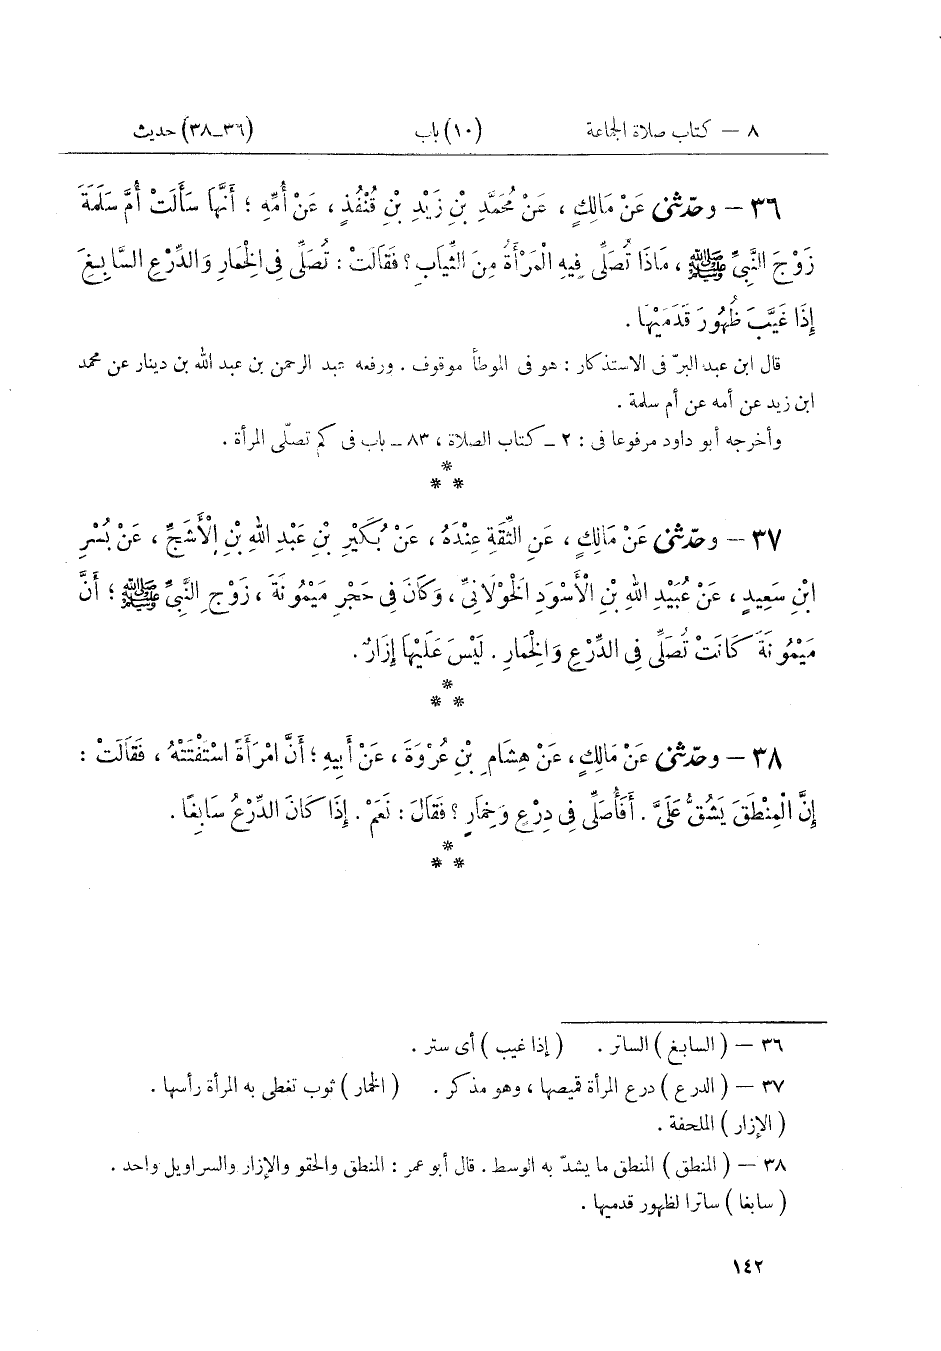 ٨ – كتاب صلاة الجماعة (١٠) باب (٣٦–٣٨) حديث
٣٦ – وحدّثنى عَنْ مَالِكٍ ، عَنْ مُحَمَّدِ بْنِ زَيْدِ بْنِ قُنْفُذٍ ، عَنْ أُمِّهِ ؛ أَنَّهَا سَأَلَتْ أُمَّ سَلَمَةَ
زَوْجَ النَّبِىِّ ﷺ ، مَاذَا تُصَلِّى فِيهِ الْمَرْأَةُ مِنَ الثِّيَابِ ؟ فَقَالَتْ : تُصَلِّى فِى الْخِمَارِ وَالدِّرْعِ السَّابِغِ
إِذَا غَيَّبَ ظُهُورَ قَدَمَيْهَا .
قال ابن عبد البرّ فى الاستذكار : هو فى الموطأ موقوف . ورفعه عبد الرحمن بن عبد الله بن دينار عن محمد
ابن زيد عن أمه عن أم سلمة .
وأخرجه أبو داود مرفوعا فى : ٢ – كتاب الصلاة ، ٨٣ – باب فى كم تصلّى المرأة .
*
* *
٣٧ – وحدّثنى عَنْ مَالِكٍ ، عَنِ الثِّقَةِ عِنْدَهُ ، عَنْ بُكَيْرِ بْنِ عَبْدِ اللهِ بْنِ الْأَشَجِّ ، عَنْ بُسْرِ
ابْنِ سَعِيدٍ ، عَنْ عُبَيْدِ اللهِ بْنِ الْأَسْوَدِ الْخَوْلَانِىِّ ، وَكَانَ فِى حَجْرِ مَيْمُونَةَ ، زَوْجِ النَّبِىِّ ﷺ ؛ أَنَّ
مَيْمُونَةَ كَانَتْ تُصَلِّى فِى الدِّرْعِ وَالْخِمَارِ . لَيْسَ عَلَيْهَا إِزَارٌ .
*
* *
٣٨ – وحدّثنى عَنْ مَالِكٍ ، عَنْ هِشَامِ بْنِ عُرْوَةَ ، عَنْ أَبِيهِ ؛ أَنَّ امْرَأَةً اسْتَفْتَتْهُ ، فَقَالَتْ :
إِنَّ الْمِنْطَقَ يَشُقُّ عَلَىَّ . أَفَأُصَلِّى فِى دِرْعٍ وَخِمَارٍ ؟ فَقَالَ : نَعَمْ . إِذَا كَانَ الدِّرْعُ سَابِغًا .
*
* *
٣٦ – ( السابغ ) الساتر . ( إذا غيب ) أى ستر .
٣٧ – ( الدرع ) درع المرأة قميصها ، وهو مذكر . ( الخمار ) ثوب تغطى به المرأة رأسها .
( الإزار ) الملحفة .
٣٨ – ( المنطق ) المنطق ما يشدّ به الوسط . قال أبو عمر : المنطق والحقو والإزار والسراويل واحد .
( سابغا ) ساترا لظهور قدميها .
١٤٢